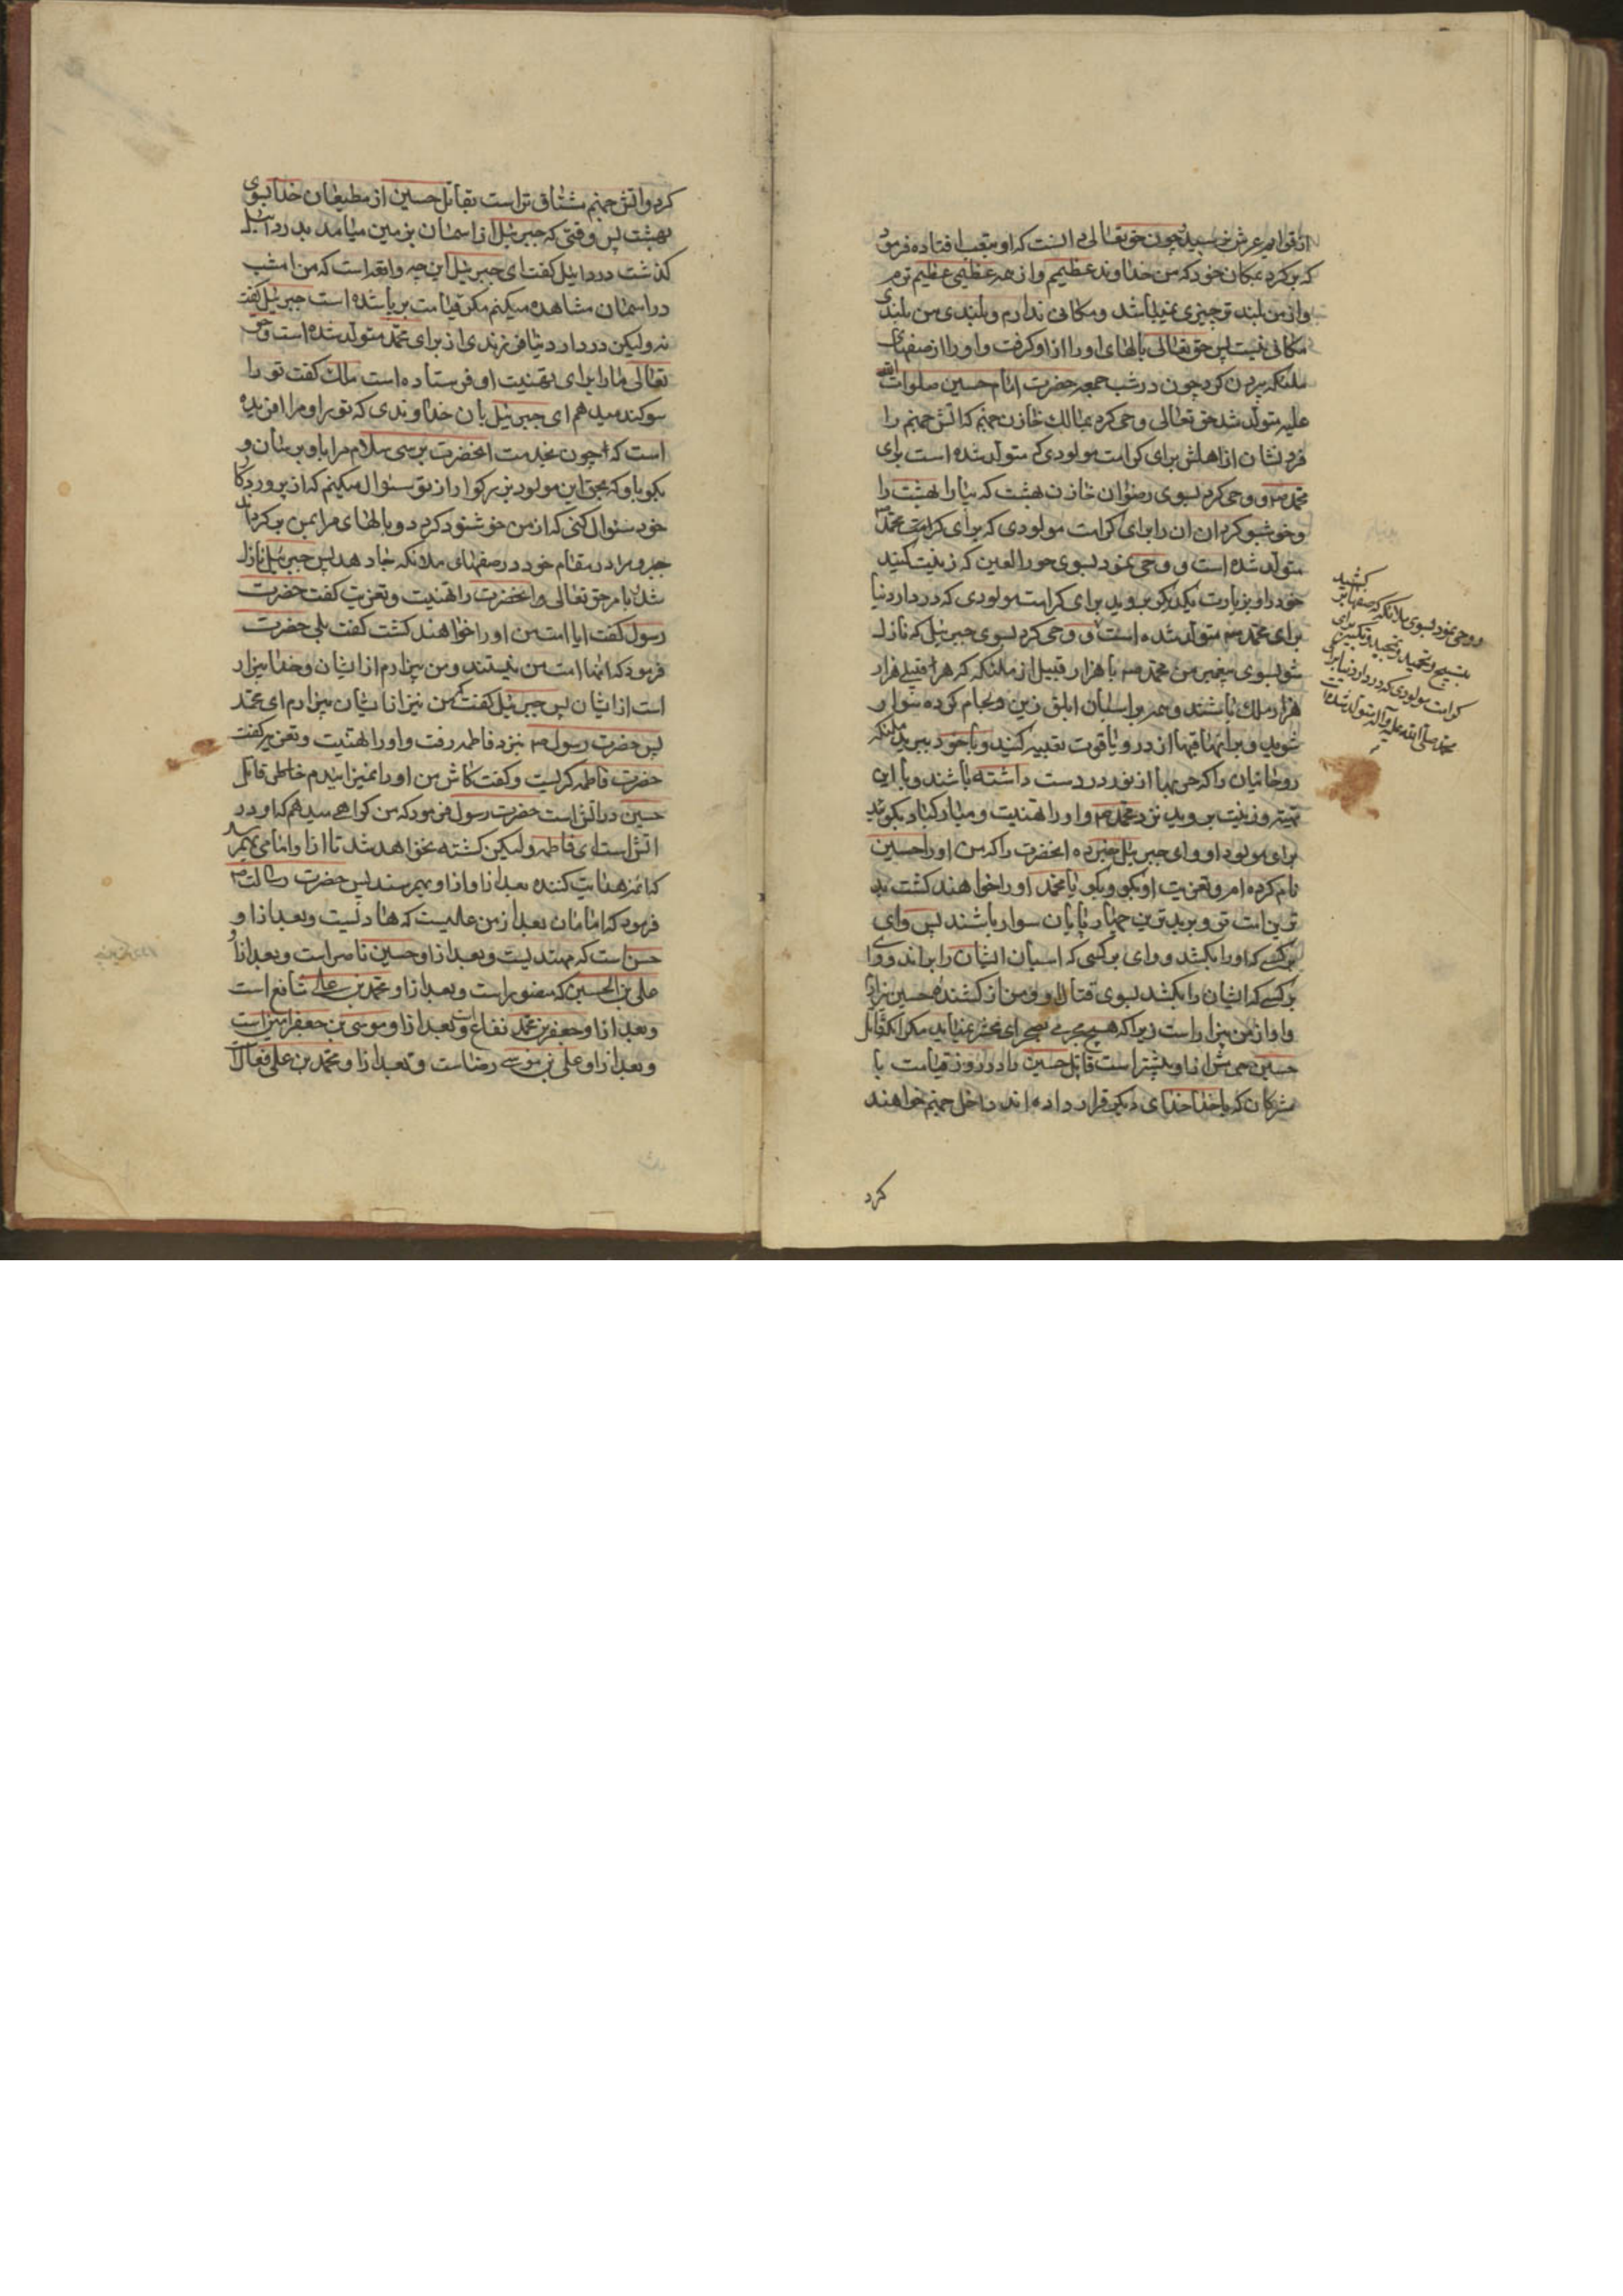 از قوایم عرش نرسید چون حق تعالی دانست که او بتعب افتاده فرمود
که برگرد بمکان خود که من خداوند عظیمم و از هر عظیمی عظیم ترم
و از من بلند تر چیزی نمیباشد و مکانی ندارم و بلندی من بلندی
مکانی نیست پس حق تعالی بالهای او را از او گرفت و او را از صفهای
ملئکه بیرون کرد چون در شب جمعه حضرت امام حسین صلوات الله
علیه متولد شد حق تعالی وحی کرد بمالک خازن جهنم که آتش جهنم را
فرو نشان از اهلش برای کرامت مولودی که متولد شده است برای
محمد ص و وحی کرد بسوی رضوان خازن بهشت که بیارا بهشت را
و خوشبو کردان آن را برای کرامت مولودی که برای کرامت محمد ص
متولد شده است و وحی نمود بسوی حور العین که زینت کنید
خود را و بزیارت یکدیگر بروید برای کرامت مولودی که در دار دنیا
برای محمد ص متولد شده است و وحی کرد بسوی جبرئیل که نازل
شو بسوی پیغمبر من محمد ص با هزار قبیل از ملئکه که هر قبیلی هزار
هزار ملک باشند و همه بر اسبان ابلق زین و لجام کرده سوار
شوید و بر آنها قبها از در و یاقوت تعبیه کنید و با خود ببرید ملئکه
روحانیان را که حربها از نور در دست داشته باشند و با این
تهیه و زینت بروید نزد محمد ص و او را تهنیت و مبارکباد بگوئید
برای مولود او و ای جبرئیل خبر ده آنحضرت را که من او را حسین
نام کرده ام و تعزیت او بگو و بگو یا محمد او را خواهند کشت بد
ترین امت تو و بر بدترین چهارپایان سوار باشند پس وای
بر کسی که او را بکشد و وای بر کسی که اسبان ایشان را براند و وای
بر کسی که ایشان را بکشد بسوی قتال او و من از کشنده حسین بیزارم
و او از من بیزار است زیرا که هیچ مجرمی بصحرای محشر نمیاید مگر آنکه قاتل
حسین جرمش از او بیشتر است قاتل حسین را در روز قیامت با
مشرکان که با خدا خدای دیگر قرار داده اند داخل جهنم خواهند
کرد
و وحی نمود بسوی ملائکه که صفها بر کشید
بتسبیح و تحمید و تمجید و تکبیر برای
کرامت مولودی که در دار دنیا برای
محمد صلی الله علیه و آله متولد شده است
کرد و آتش جهنم مشتاق تر است بقاتل حسین از مطیعان خدا بسوی
بهشت پس وقتی که جبرئیل از آسمان بزمین میامد بدردائیل
گذشت دردائیل گفت ای جبرئیل این چه واقعه است که من امشب
در آسمان مشاهده میکنم مگر قیامت برپا شده است جبرئیل گفت
نه ولیکن در دار دنیا فرزندی از برای محمد متولد شده است و حق
تعالی ما را برای تهنیت او فرستاده است ملک گفت تو را
سوگند میدهم ای جبرئیل بآن خداوندی که تو را و مرا آفریده
است که چون بخدمت آنحضرت برسی سلام مرا باو برسان و
بگو باو که بحق این مولود بزرگوار از تو سئوال میکنم که از پروردگار
خود سئوال کنی که از من خوشنود گردد و بالهای مرا بمن برگرداند
و مرا در مقام خود در صفهای ملائکه جا دهد پس جبرئیل نازل
شد بامر حق تعالی و آنحضرت را تهنیت و تعزیت گفت حضرت
رسول گفت آیا امت من او را خواهند کشت گفت بلی حضرت
فرمود که آنها امت من نیستند و من بیزارم از ایشان و خدا بیزار
است از ایشان پس جبرئیل گفت که من نیز از ایشان بیزارم ای محمد
پس حضرت رسول ص بنزد فاطمه رفت و او را تهنیت و تعزیه گفت
حضرت فاطمه گریست و گفت کاش من او را نمیزائیدم قاتل
حسین در آتش است حضرت رسول فرمود که من گواهی میدهم که او در
آتش است ای فاطمه ولیکن کشته نخواهد شد تا از او امامی بهم رسد
که ائمه هدایت کننده بعد از او از او بهم رسند پس حضرت رسالت ص
فرمود که امامان بعد از من علیست که هادیست و بعد از او
حسن است که مهتدیست و بعد از او حسین ناصر است و بعد از او
علی بن الحسین که منصور است و بعد از او محمد بن علی شافع است
و بعد از او جعفر بن محمد نفاع است و بعد از او موسی بن جعفر امین است
و بعد از او علی بن موسی رضاست و بعد از او محمد بن علی فعال است